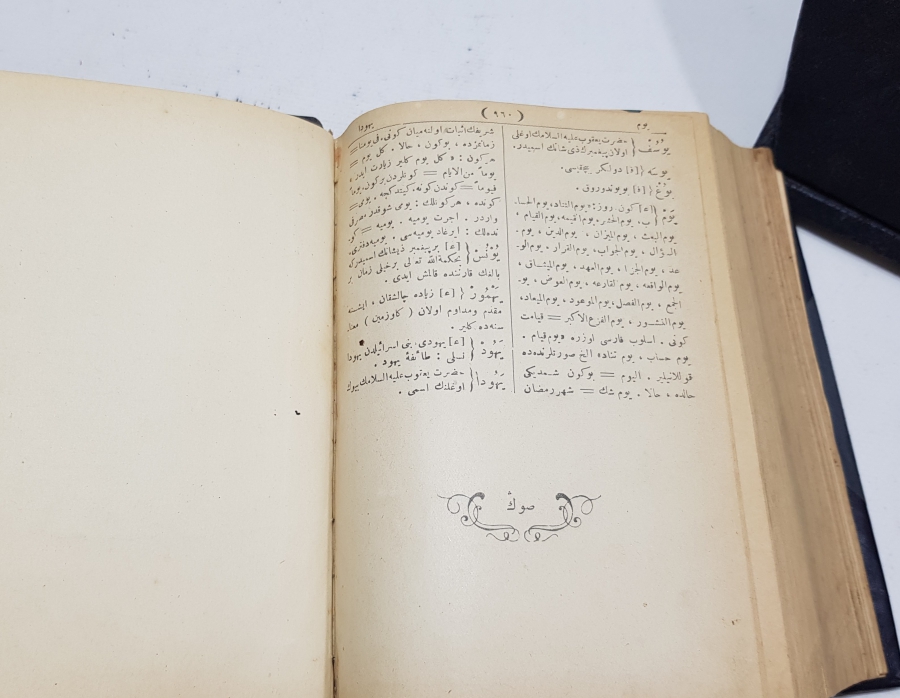 يوم ( ٩٦٠ ) يهودا
يوسُف { حضرت يعقوب عليه السلامك اوغلى
اولان پيغمبرك ذى شانك اسميدر.
يوسَه { [ف] دولكر بچقيسى.
يوغ { [ف] بويوندوروق .
يَوْم { [ع] كون روز: يوم التناد، يوم الحسا-
ب، يوم الحشر، يوم القيمه، يوم القيام ،
يوم البعث ، يوم الميزان ، يوم الدين ، يوم-
السؤال ، يوم الجواب، يوم القرار ، يوم الو-
عد ، يوم الجزا ، يوم العهد ، يوم الميثاق ،
يوم الواقعه ، يوم القارعه ، يوم العوض ، يو-
الجمع ، يوم الفصل، يوم الموعود ، يوم الميعاد،
يوم النشور ، يوم الفزع الاكبر = قيامت
كونى . اسلوب فارسى اوزره «يوم قيام .
يوم حساب ، يوم تناد» الخ صورتلرنده ده
قوللانيلير . اليوم = بوكون شمديكى
حالده ، حالا . يوم شك = شهر رمضان
شريفك اثباتنده اولنه ميان كونى. فى يومنا =
زمانمزده ، بوكون ، حالا . كل يوم =
هركون : « كل يوم كلير زيارت ايدر ،
يوماً من الايام = كونلردن بركون. يوماً
فيوماً = كوندن كونه، كيتدكجه . يومى =
كونده ، هركونلك : يومى شوقدر مصرفى
واردر . اجرت يوميه . يوميه = كو-
نده لك : ايرغاد يوميه سى . يوميه دفترى.
يونُس { [ع] بر پيغمبر ذيشانك اسميدر كه
بحكمة الله تعالى برخيلى زمان بر
بالغك قارننده قالمش ايدى .
يَهْمُور { [ع] زياده چالشقان ، ايشنه
مقدم ومداوم اولان ( كاوزمين ) معنا-
سنه ده كلير .
يَهُود { [ع] يهودى، بنى اسرائيلدن يهودا
نسلى : طائفۀ يهود .
يَهُودا { حضرت يعقوب عليه السلامك بيوك
اوغلنك اسمى .
صوڭ